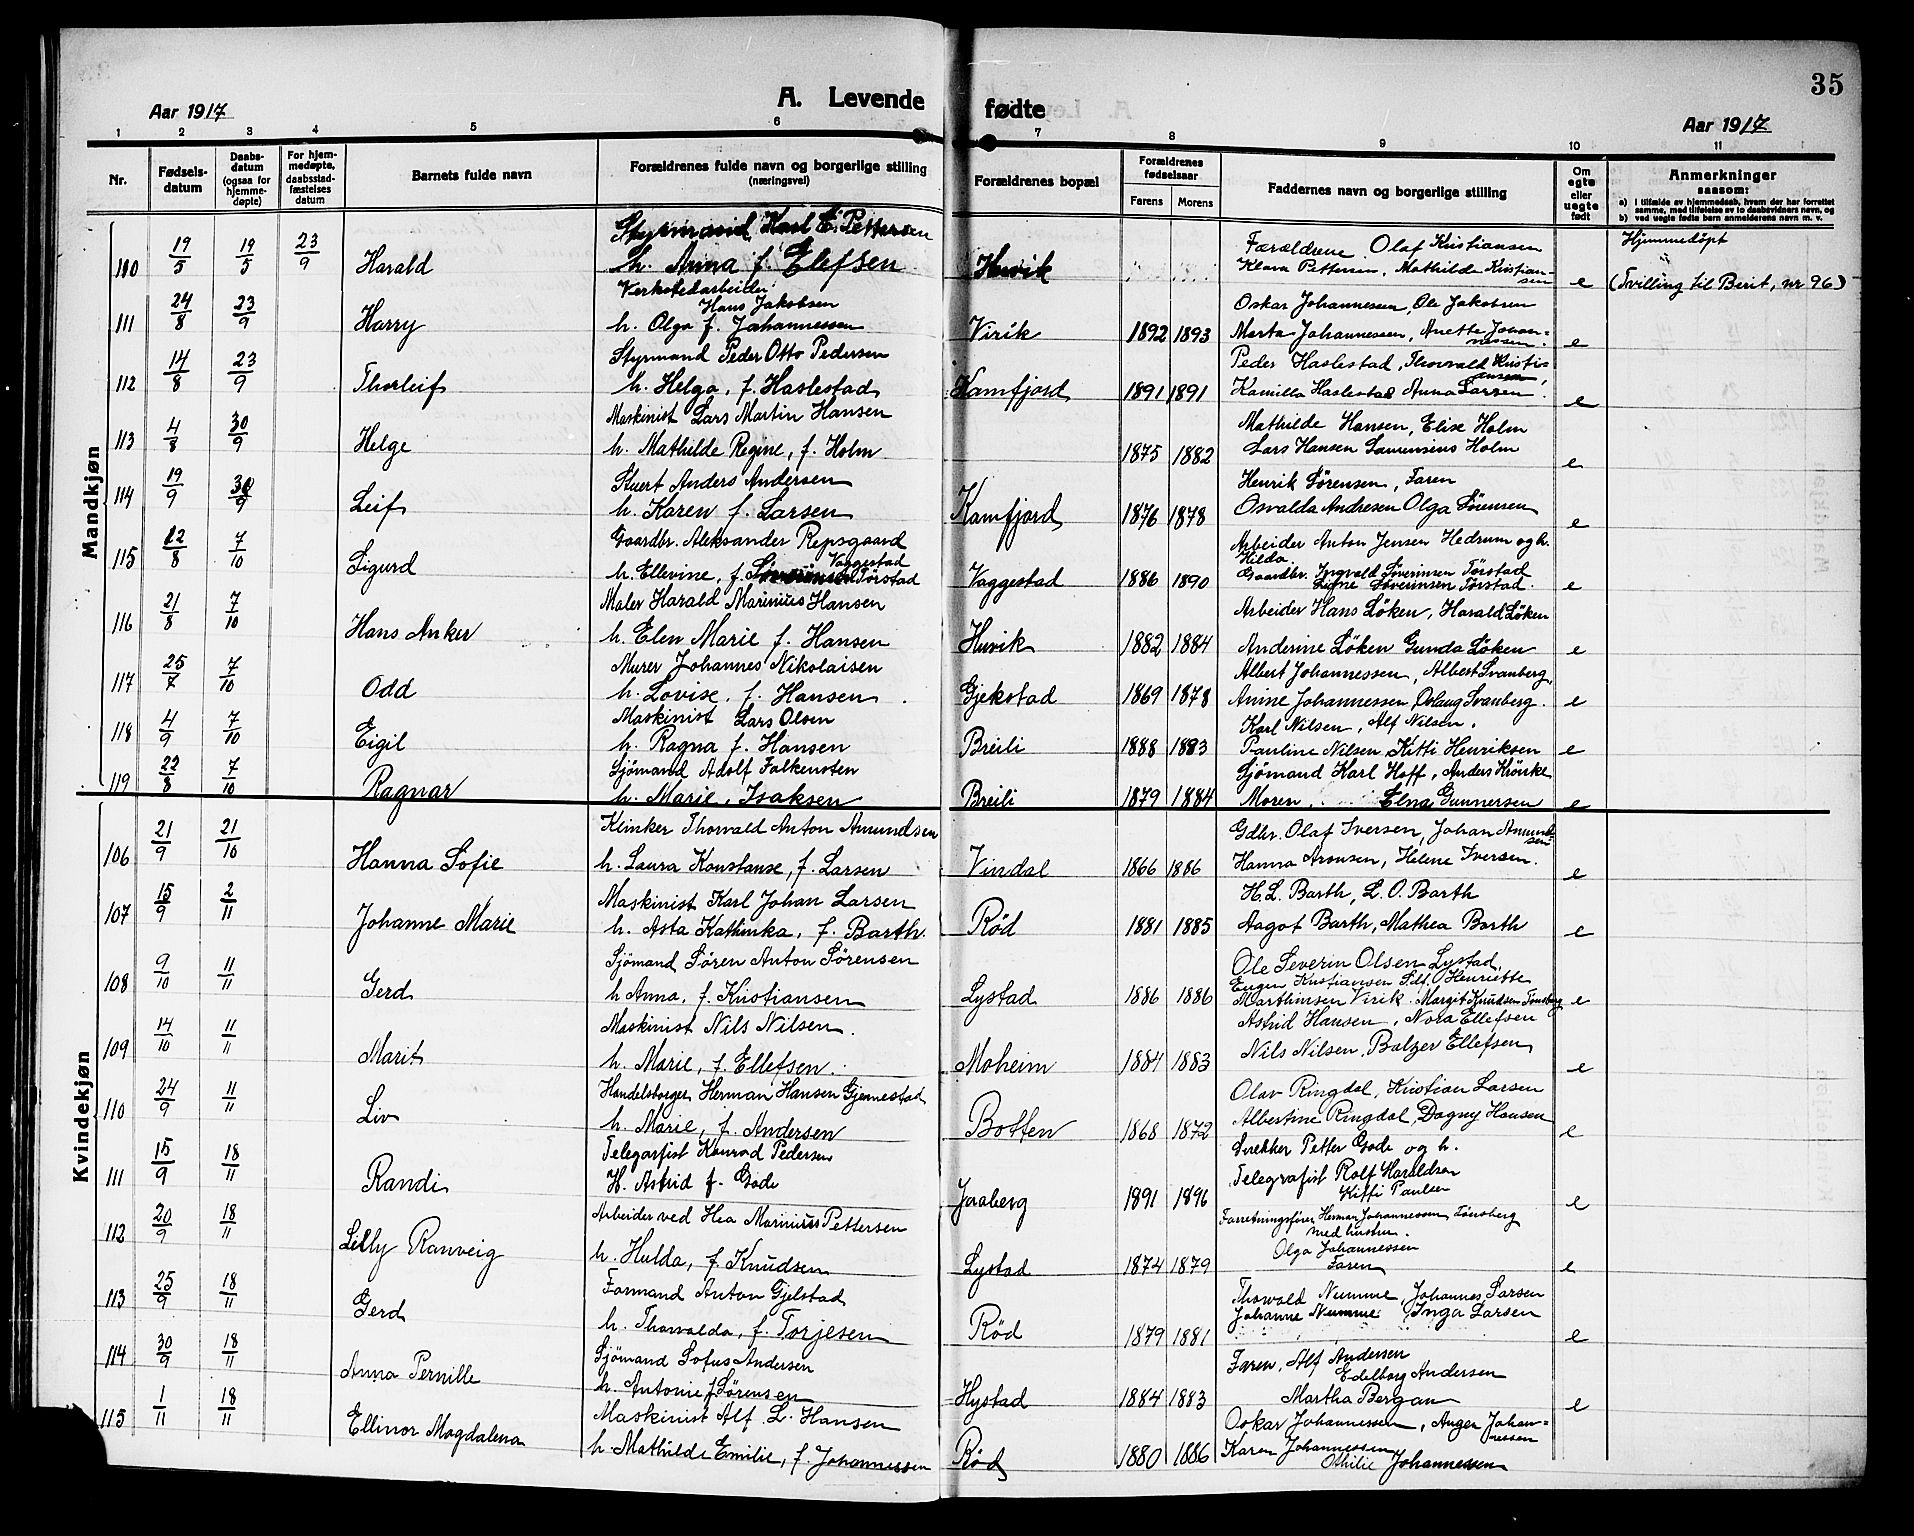 35
A. Levende fødte
Aar 1917
Aar 1917
1 2 3 4 5 6 7 8 9 10 11
Nr.
Fødsels-
datum
Daabs-
datum
(ogsaa for
hjemme-
døpte)
For hjem-
medøpte,
daabsstad-
fæstelses
datum
Barnets fulde navn
Forældrenes fulde navn og borgerlige stilling
(næringsvei)
Forældrenes bopæl
Forældrenes
fødselsaar
Farens Morens
Faddernes navn og borgerlige stilling
Om
egte
eller
uegte
født
Anmerkninger
saasom:
a) i tilfælde av hjemmedaab, hvem der har forrettet
samme, med tilføielse av to daabsvidners navn, og
b) ved uegte fødte barn anmelderens navn m. v.
Mandkjøn
Styrmand Karl E. Pettersen
110 19/5 19/5 23/9 Harald h. Anna f. Elefsen Huvik
Forældrene. Olaf Kristiansen
Klara Pettersen, Mathilde Kristian-
sen e
Hjemmedöpt
(Tvilling til Berit, nr 96)
Verkstedarbeider
Hans Jakobsen
111 24/8 23/9 Harry h. Olga f. Johannessen Virik 1892 1893
Oskar Johannessen, Ole Jakobsen
Marta Johannessen, Anette Johan-
nessen. e
Styrmand Peder Otto Pedersen
112 14/8 23/9 Thorleif h. Helga, f. Haslestad Kamfjord 1891 1891
Peder Haslestad, Thorvald Kristi-
ansen,
Kamilla Haslestad Anna Larsen. e
Maskinist Lars Martin Hansen
113 4/8 30/9 Helge h. Mathilde Regine, f. Holm 1875 1882
Mathilde Hansen, Elise Holm
Lars Hansen Laurensens Holm e
Stuert Anders Andersen
114 19/9 30/9 Leif h. Karen f. Larsen Kamfjord 1876 1878
Henrik Sörensen, Faren
Osvalda Andresen Olga Sörensen e
Gaardbr. Aleksander Repsgaard
Vaggestad
115 12/8 7/10 Sigurd h. Ellevine, f. Törstad Vaggestad 1886 1890
Arbeider Anton Jensen Hedrum og h.
Hilda
Gaardbr. Ingvald Söverinsen Törstad
Signe Söverinsen Törstad. e
Maler Harald Marinius Hansen
116 21/8 7/10 Hans Anker h. Elen Marie f. Hansen Huvik 1882 1884
Arbeider Hans Löken, Harald Löken
Anderine Löken Gunda Löken e
Murer Johannes Nikolaisen
117 25/7 7/10 Odd h. Lovise, f. Hansen Gjekstad 1869 1878
Albert Johannessen, Albert Svanberg,
Anine Johannessen, Oslaug Svanberg. e
Maskinist Lars Olsen
118 4/9 7/10 Eigil h. Ragna f. Hansen Breili 1888 1883
Karl Nilsen, Alf Nilsen,
Pauline Nilsen, Kitti Henriksen e
Sjömand Adolf Falkensten
119 22/8 7/10 Ragnar h. Marie, Isaksen Breili 1879 1884
Sjömand Karl Hoff, Anders Krönke
Moren, Elna Gunnersen e
Kvindekjøn
Klinker Thorvald Anton Amundsen
106 21/9 21/10 Hanna Sofie h. Laura Konstanse, f. Larsen Vindal 1866 1886
Gdbr. Olaf Iversen, Johan Amund-
sen
Hanna Aronsen, Helene Iversen. e
Maskinist Karl Johan Larsen
107 15/9 2/11 Johanne Marie h. Asta Kathinka, f. Barth. Rød 1881 1885
H. L. Barth, L. O. Barth
Aagot Barth, Mathea Barth e
Sjömand Sören Anton Sörensen
108 9/10 11/11 Gerd h Anna, f. Kristiansen Lystad 1886 1886
Ole Severin Olsen Lystad,
Eugen Kristiansen Sdf. Henriette
Marthinsen Virik. Margit Knudsen Tönsberg e
Maskinist Nils Nilsen.
109 14/10 11/11 Marit h. Marie, f. Ellefsen. Moheim 1884 1883
Astrid Hansen, Nora Ellefsen
Nils Nilsen, Balzer Ellefsen e
Handelsborger Herman Hansen Gjennestad
110 24/9 11/11 Liv h. Marie, f. Andersen Botten 1868 1872
Olav Ringdal, Kristian Larsen
Albertine Ringdal, Dagny Hansen e
Telegarfist Konrad Pedersen
111 15/9 18/11 Randi H. Astrid f. Gode Jaaberg 1891 1896
Snekker Petter Gode og h.
Telegrafist Rolf Haraldsen
Kitti Paulsen e
Arbeider ved Hea Marinius Pettersen
112 20/9 18/11 Lilly Ranveig h. Hulda, f. Knudsen Lystad 1874 1879
Forretningsförer Herman Johannessen, Tönsberg
med hustru.
Olga Johannessen
Faren e
Formand Anton Gjelstad
113 25/9 18/11 Gerd h. Thorvalda, f. Torjesen Rød 1879 1881
Thorvald Numme, Johannes Larsen
Johanne Numme Inga Larsen e
Sjömand Sofus Andersen
114 30/9 18/11 Anna Pernille h. Antonie f Sörensen Hystad 1884 1883
Faren, Alf Andersen
Edelborg Andersen
Martha Bergan e
Maskinist Alf L. Hansen
115 1/11 18/11 Ellinor Magdalena h. Mathilde Emilie, f. Johannessen Rød 1880 1886
Oskar Johannessen, Anger Johan-
nessen
Karen Johannessen
Othilie Johannessen